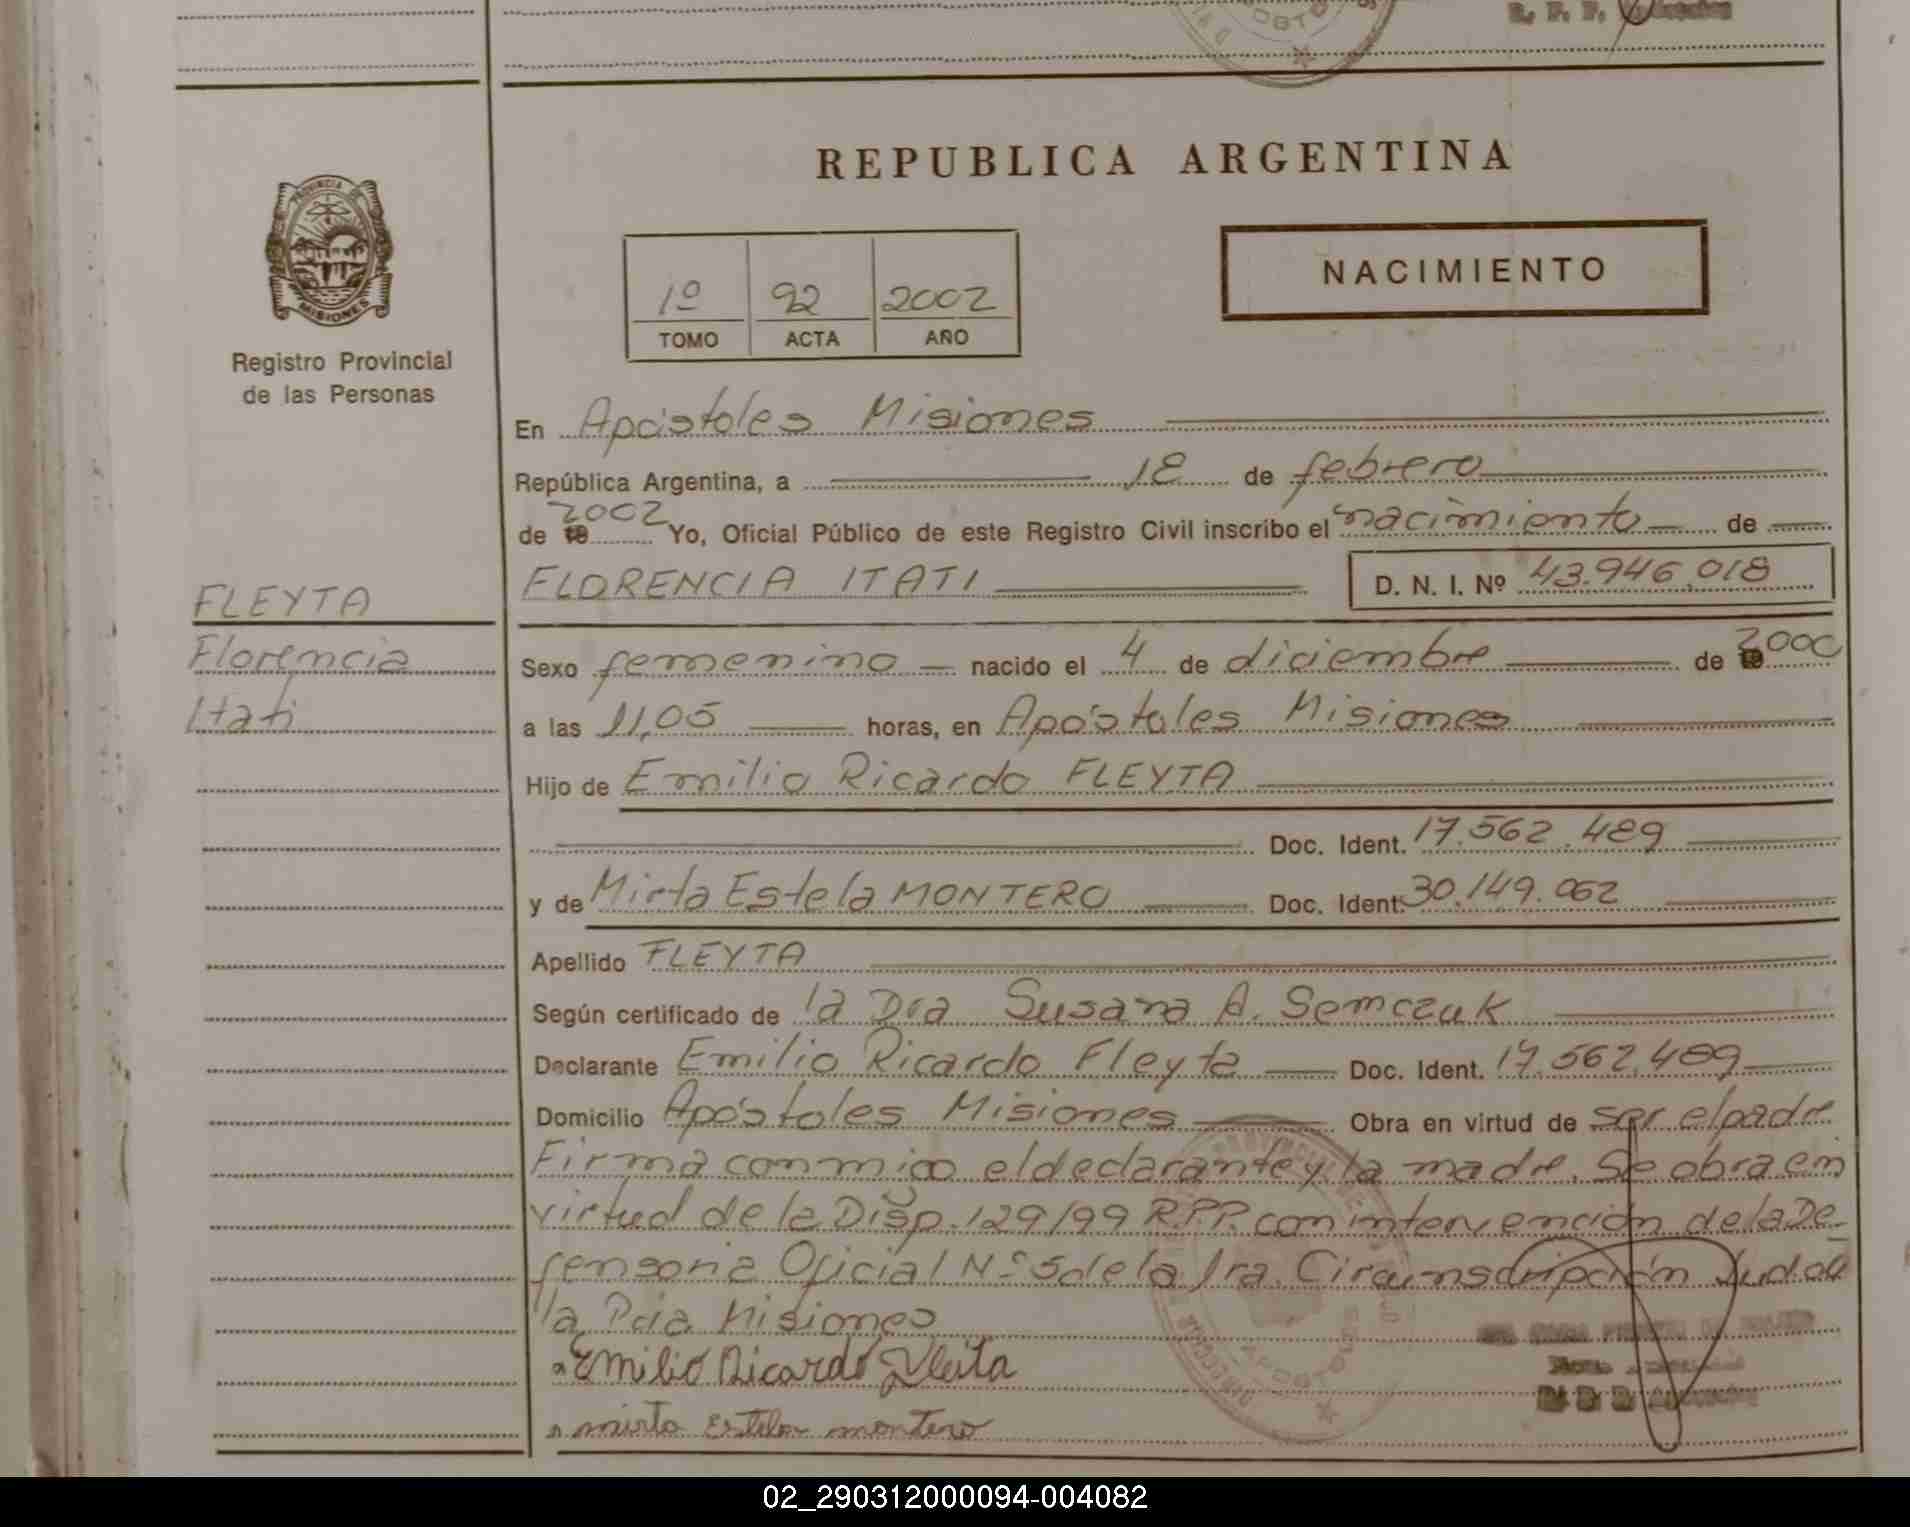 REPUBLICA ARGENTINA
PROVINCIA DE
MISIONES
Registro Provincial
de las Personas
1º 92 2002
TOMO ACTA AÑO
NACIMIENTO
En Apóstoles Misiones
República Argentina, a 18 de febrero
de 2002 Yo, Oficial Público de este Registro Civil inscribo el nacimiento de
FLORENCIA ITATI D. N. I. Nº 43.946.018
FLEYTA
Florencia
Itati
Sexo femenino nacido el 4 de diciembre de 2000
a las 11,05 horas, en Apóstoles Misiones
Hijo de Emilio Ricardo FLEYTA
Doc. Ident. 17.562.489
y de Mirta Estela MONTERO Doc. Ident. 30.149.062
Apellido FLEYTA
Según certificado de la Dra Susana A. Semczuk
Declarante Emilio Ricardo Fleyta Doc. Ident. 17.562.489
Domicilio Apóstoles Misiones Obra en virtud de ser el padre
Firma conmigo el declarante y la madre. Se obra en
virtud de la Disp. 129/99 R.P.P. con intervención de la De-
fensoria Oficial Nº 5 de la 1ra. Circunscripción Jud. de
la Pcia Misiones
Emilio Ricardo Fleita
mirta Estela montero
02_290312000094-004082